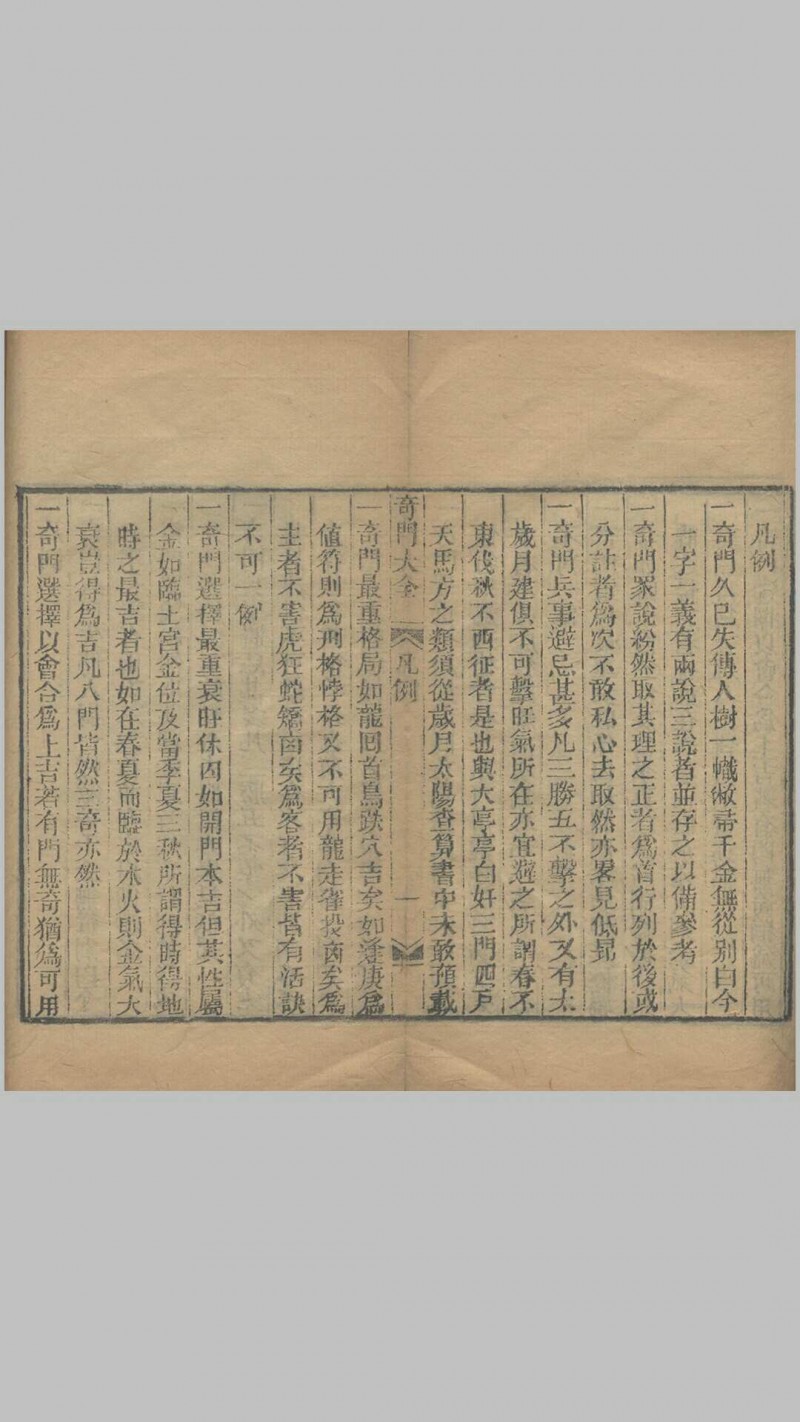 凡例
一奇門久已失傳人樹一幟敝帚千金無從別白今
一字一義有兩說三說者並存之以備參考
一奇門家說紛然取其理之正者為首行列於後或
分註者為次不敢私心去取然亦畧見低昻
一奇門兵事避忌甚多凡三勝五不擊之外又有太
歲月建俱不可擊旺氣所在亦宜避之所謂春不
東伐秋不西征者是也與大亭亭白奸三門四戸
天馬方之類須從歲月太陽查算書中未敢預載
奇門大全 凡例 一
一奇門最重格局如龍囘首鳥跌穴吉矣如逢庚爲
値符則爲刑格悖格又不可用龍走雀投凶矣爲
主者不害虎狂蛇矯凶矣爲客者不害皆有活訣
不可一例
一奇門選擇最重衰旺休囚如開門本吉但其性屬
金如臨土宮金位及當季夏三秋所謂得時得地
時之最吉者也如在春夏而臨於木火則金氣大
衰豈得爲吉凡八門皆然三奇亦然
一奇門選擇以會合爲上吉若有門無奇猶爲可用